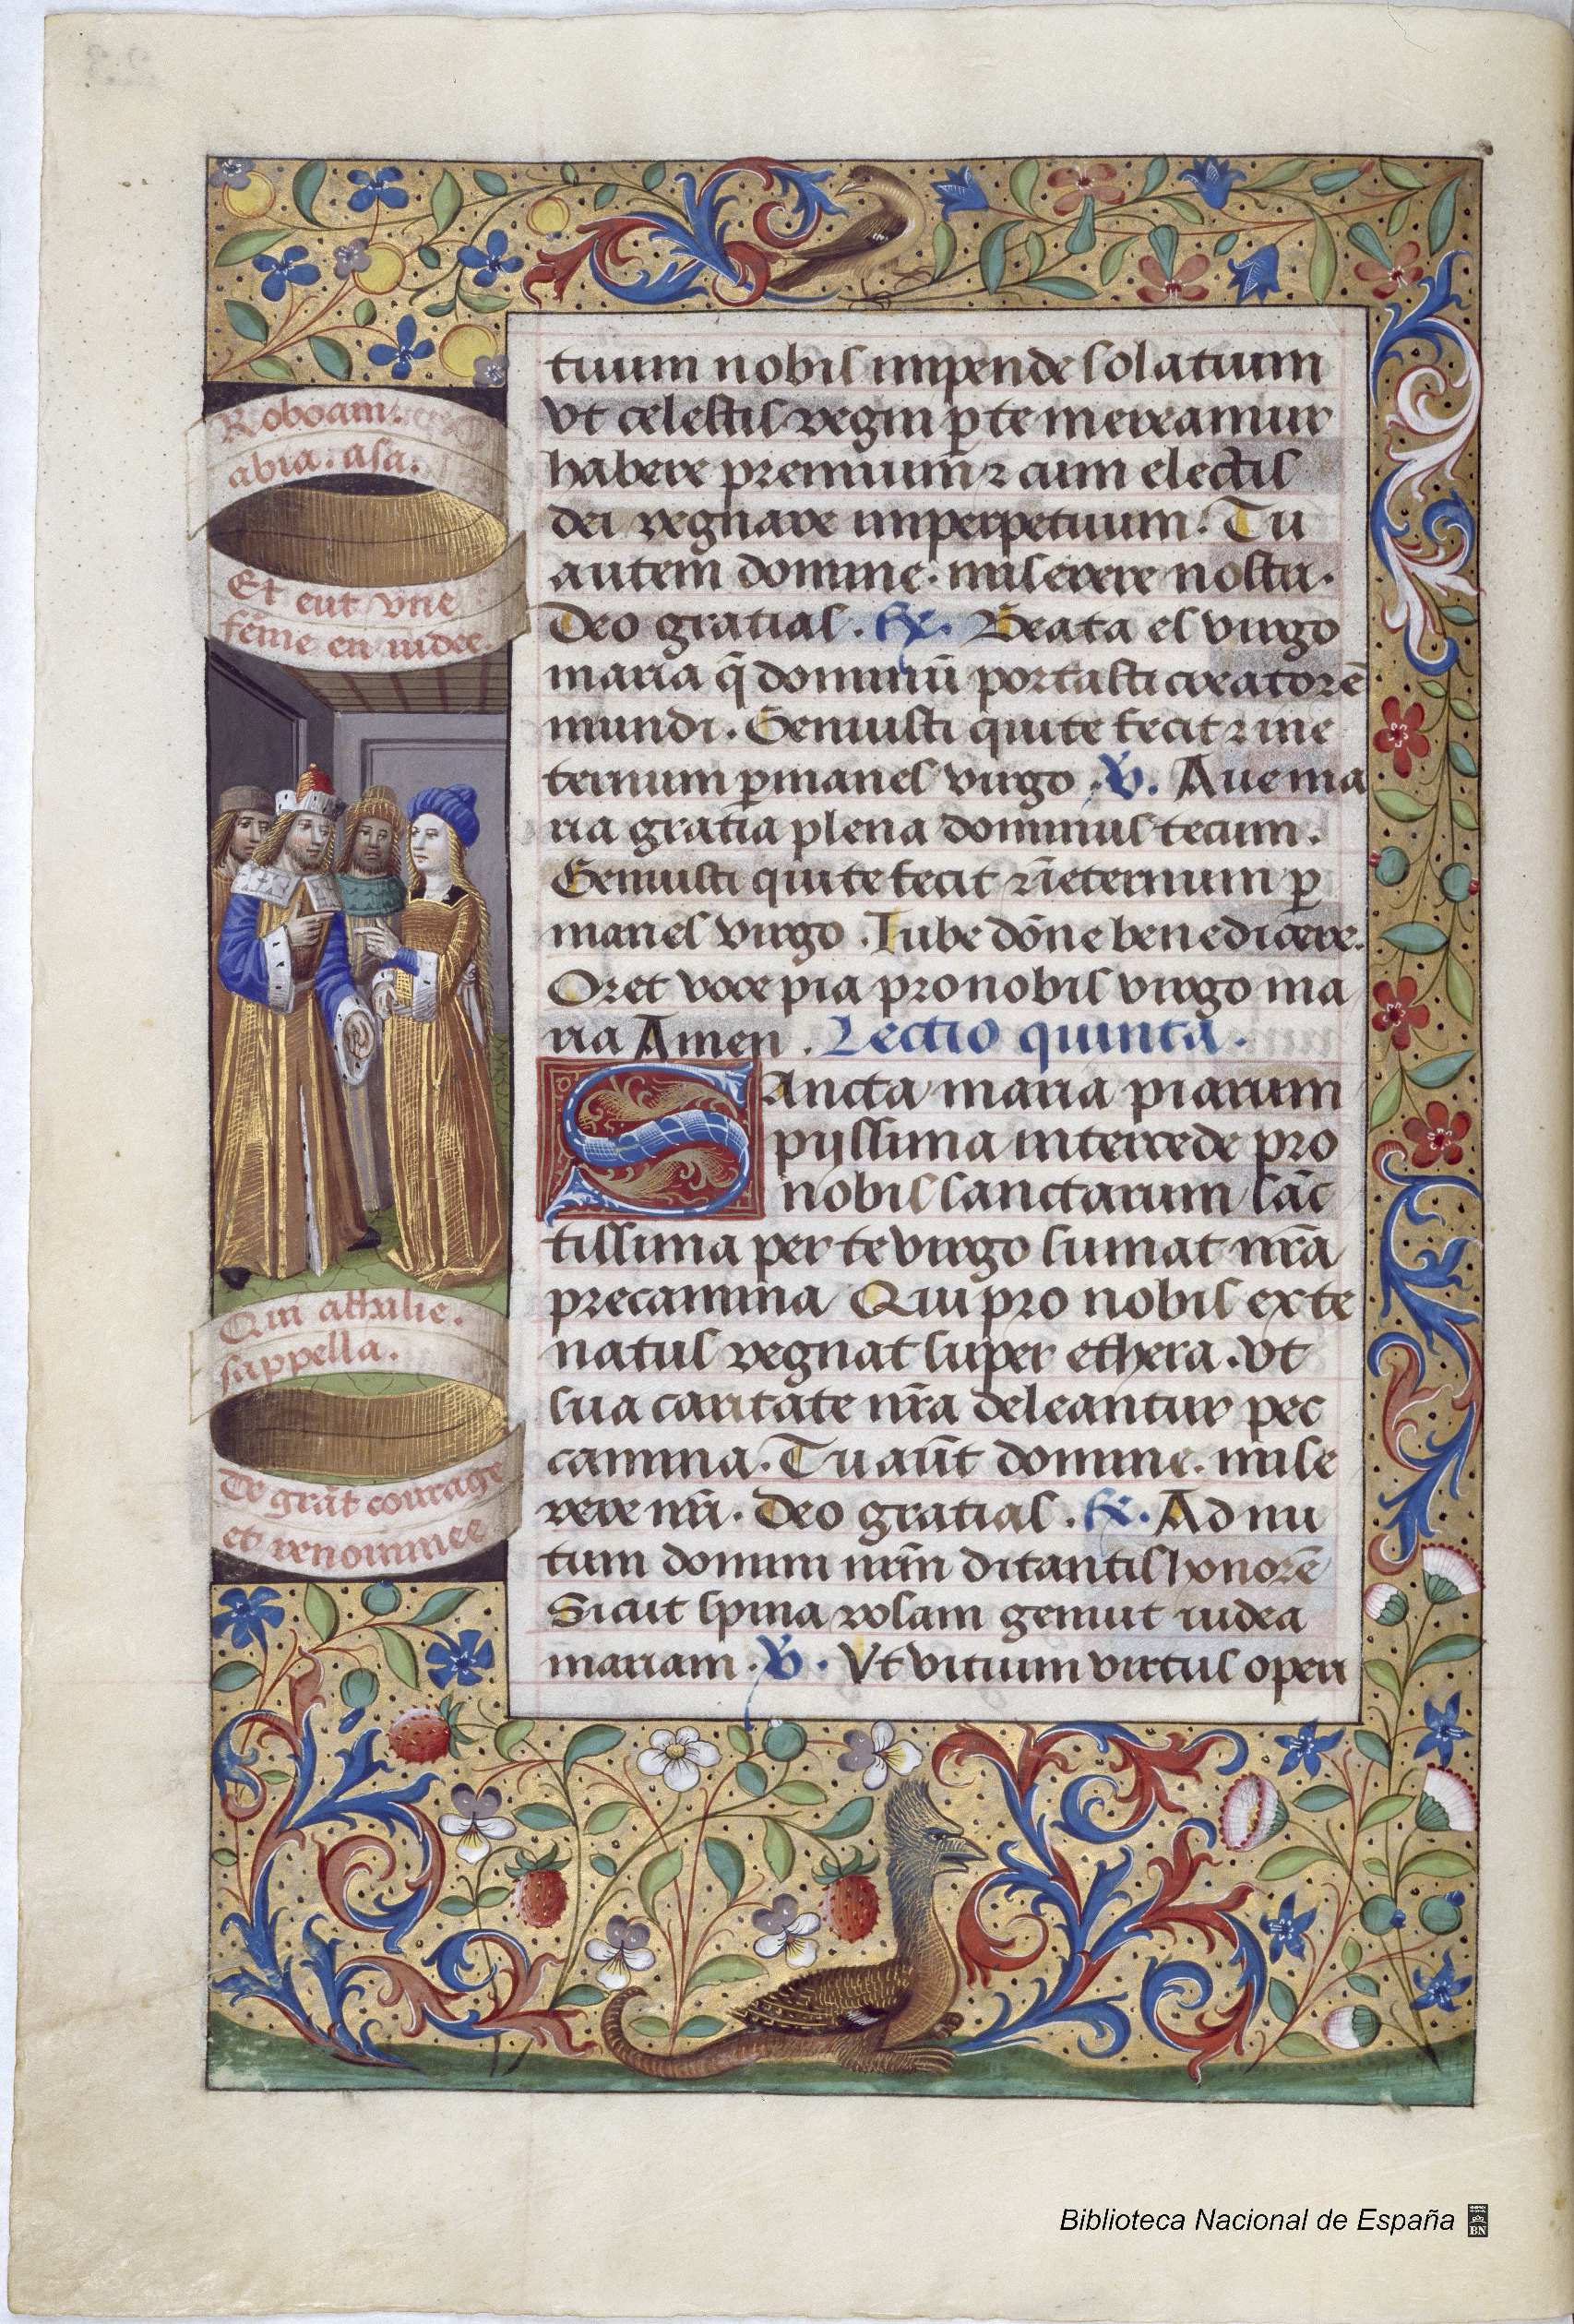 Roboam.
abia. asa.
Et eut vne
fe͂me en iudee.
Qui athalie.
sappella.
De gra͂t courage
et renommee
tuum nobis impende solatium
vt celestis regni ꝑ te mereamur
habere premium ⁊ cum electis
dei regnare imperpetuum. Tu
autem domine. miserere nostri.
Deo gratias. ℟. Beata es virgo
maria q̄ dominū portasti creatorē
mundi. Genuisti qui te fecit ⁊ in e
ternum ꝑmanes virgo. ℣. Aue ma
ria gratia plena dominus tecum.
Genuisti qui te fecit ⁊ īeternum ꝑ
manes virgo. Iube dōne benedicere.
Oret voce pia pro nobis virgo ma
ria Amen. Lectio quinta.
SAncta maria piarum
pijssima intercede pro
nobis sanctarum sāc
tissima per te virgo sumat nr̄a
precamina Qui pro nobis ex te
natus regnat super ethera. vt
sua caritate nr̄a deleantur pec
camina. Tu aūt domine. mise
rere nr̄i. Deo gratias. ℟. Ad nu
tum domini nr̄m ditantis honorē
Sicut spina rosam genuit iudea
mariam. ℣. Vt vitium virtus operi
Biblioteca Nacional de España
BN